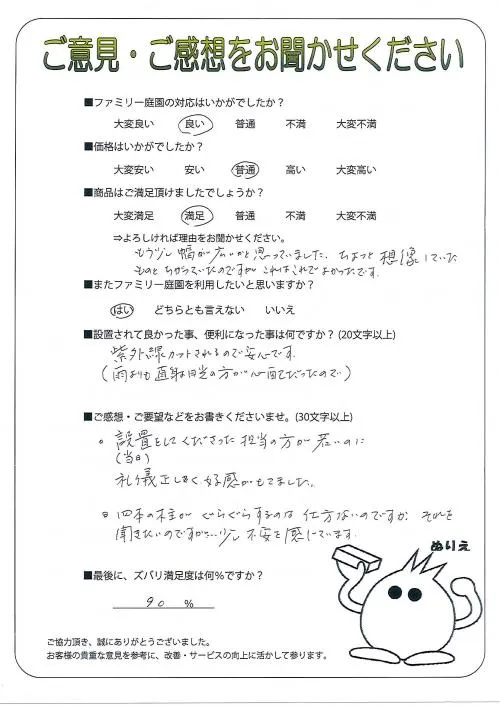 ご意見・ご感想をお聞かせください
■ファミリー庭園の対応はいかがでしたか？
大変良い 良い 普通 不満 大変不満
■価格はいかがでしたか？
大変安い 安い 普通 高い 大変高い
■商品はご満足頂けましたでしょうか？
大変満足 満足 普通 不満 大変不満
⇒よろしければ理由をお聞かせください。
もう少し幅が広いかと思っていました。ちょっと想像していた
ものとちがっていたのですが これはこれでよかったです。
■またファミリー庭園を利用したいと思いますか？
はい どちらとも言えない いいえ
■設置されて良かった事、便利になった事は何ですか？(20文字以上)
紫外線カットされるので安心です。
(雨よりも直射日光の方が心配だったので)
■ご感想・ご要望などをお書きくださいませ。(30文字以上)
設置をしてくださった担当の方が若いのに
(当日)
礼儀正しく好感がもてました。
四本の柱がぐらぐらするのは仕方ないのですか それを
聞きたいのですが…少し不安を感じています。
ぬりえ
■最後に、ズバリ満足度は何％ですか？
90 %
ご協力頂き、誠にありがとうございました。
お客様の貴重な意見を参考に、改善・サービスの向上に活かして参ります。